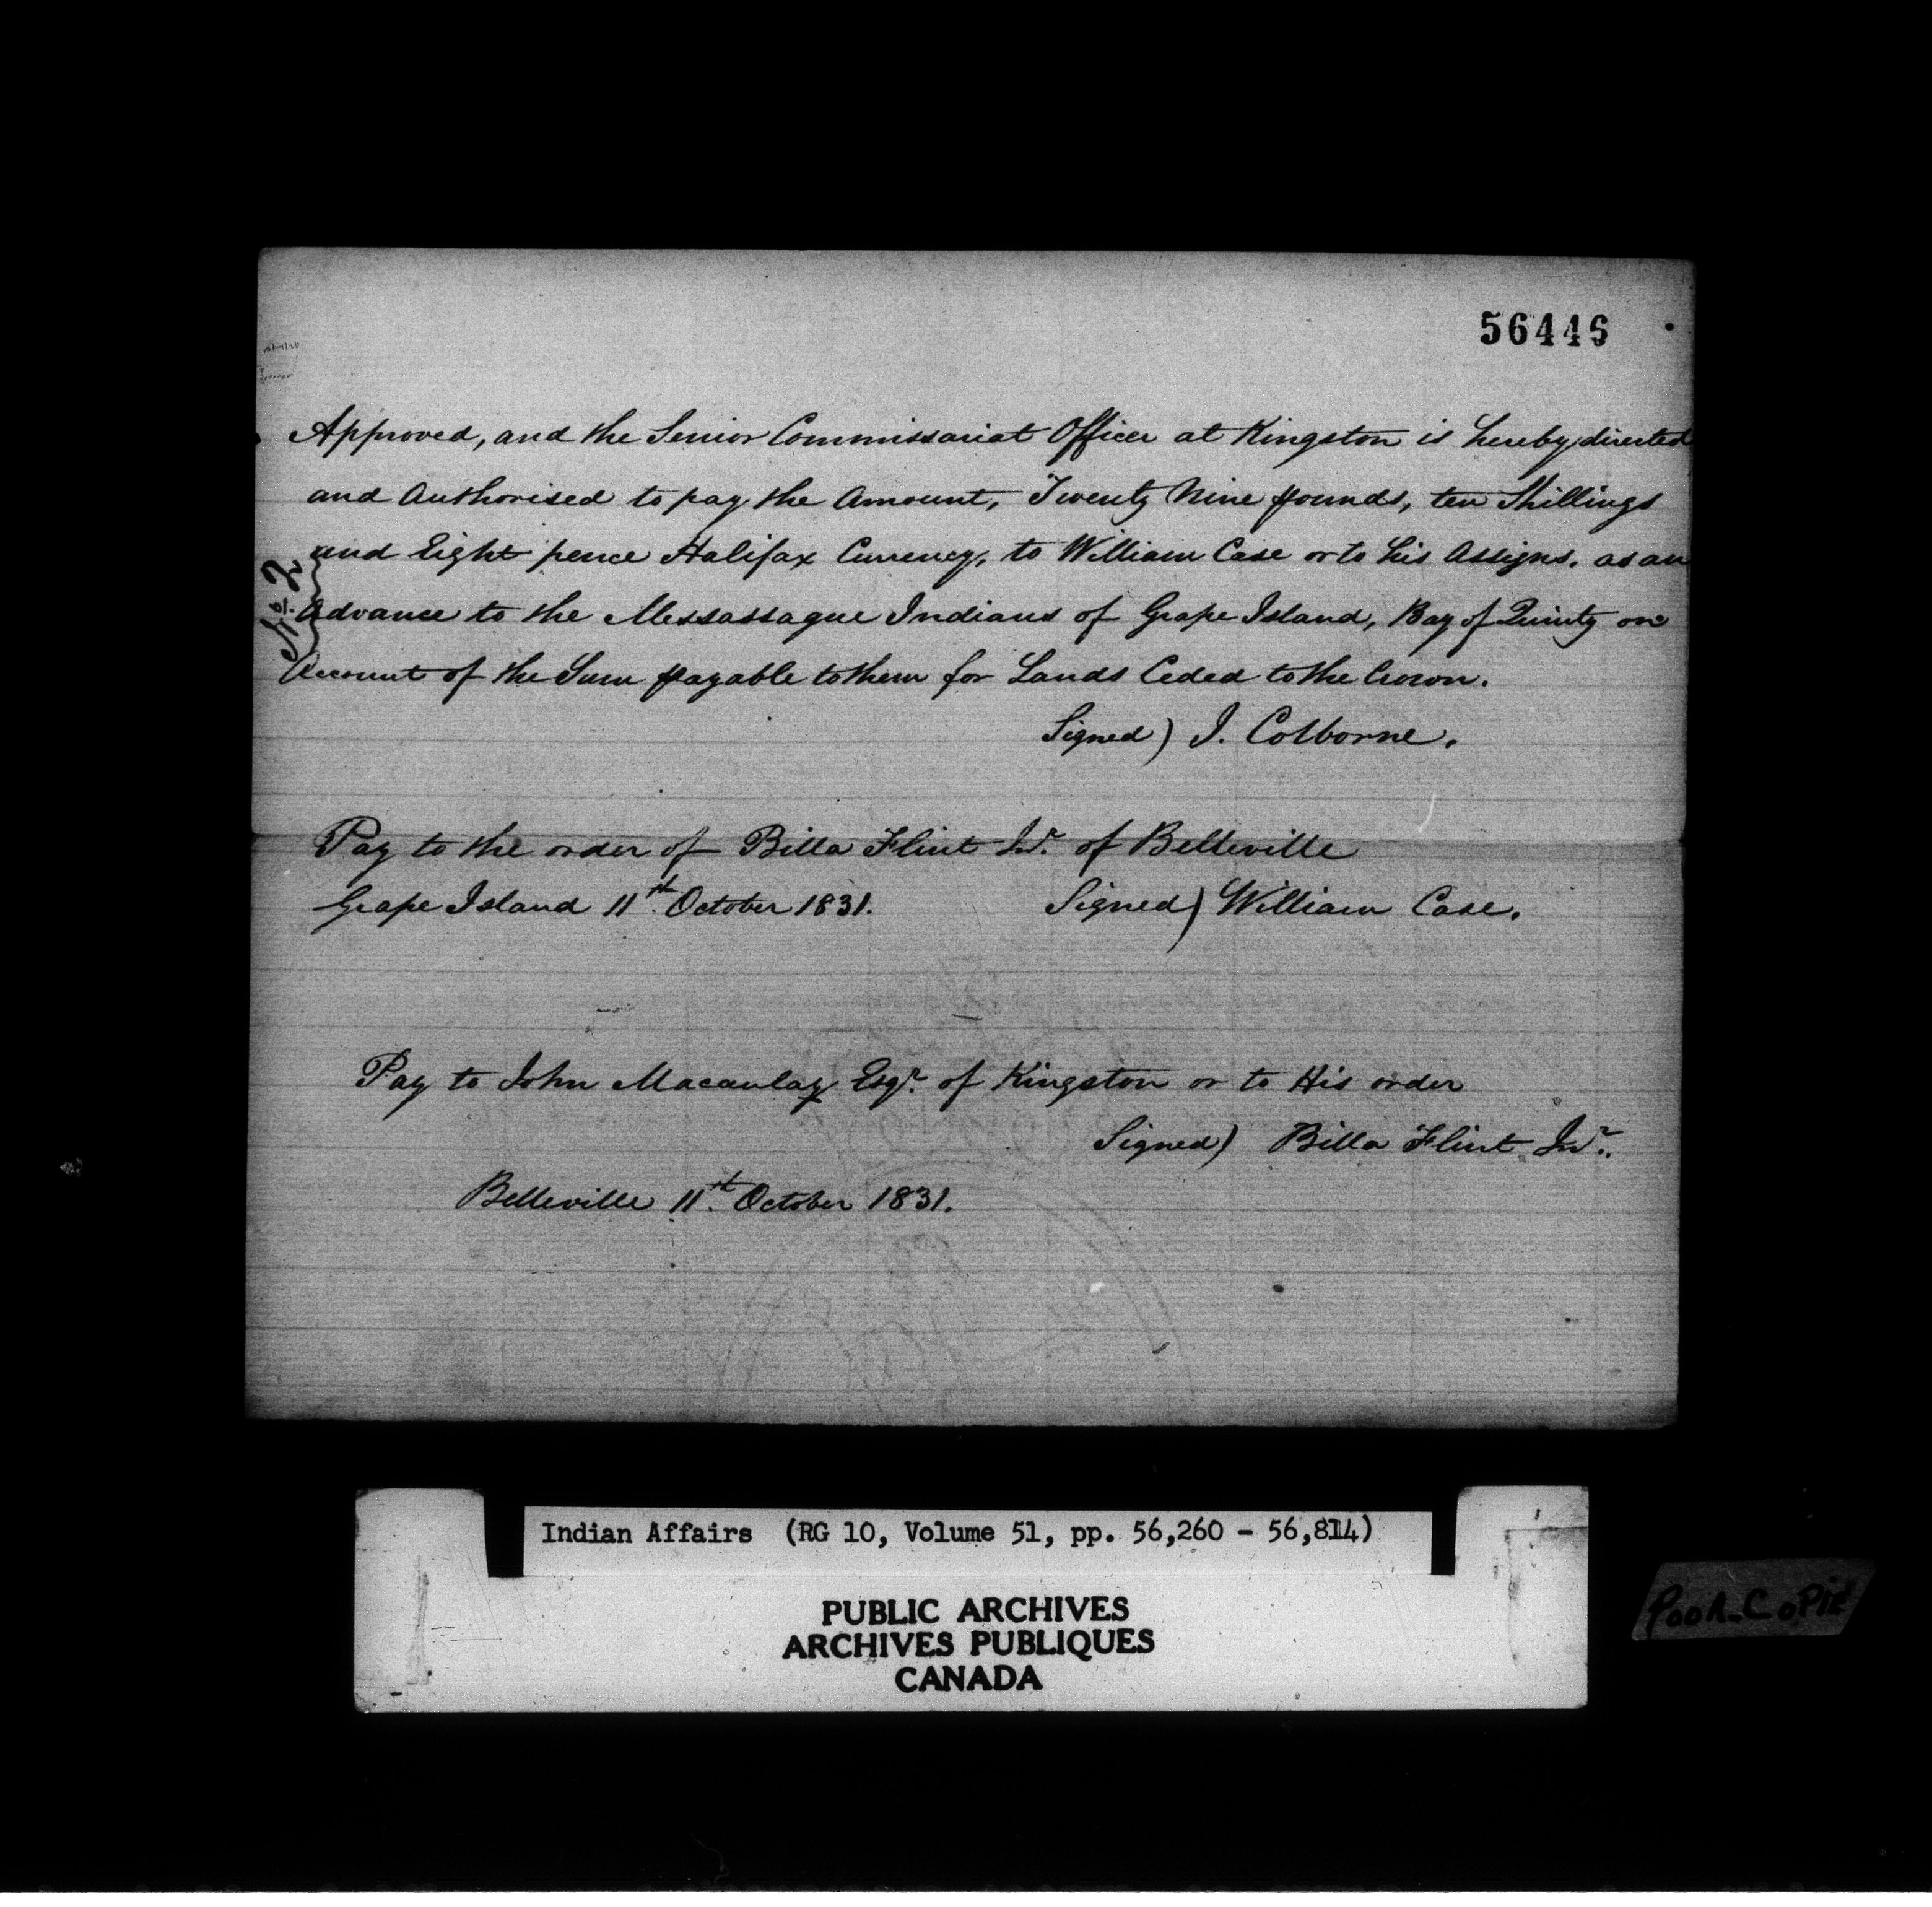 56446
Approved, and the Senior Commissariat Officer at Kingston is hereby directed
and Authorised to pay the Amount, Twenty Nine pounds, ten Shillings
and Eight pence Halifax Currency, to William Case or to his Assigns. as an
Advance to the Messassague Indians of Grape Island, Bay of Quinty on
Account of the Sum payable to them for Lands Ceded to the Crown.
No. 2
Signed) J. Colborne.
Pay to the order of Billa Flint Jnr. of Belleville
Grape Island 11th. October 1831. Signed) William Case.
Pay to John Macaulay Esqr. of Kingston or to His order
Signed) Billa Flint Jnr.
Belleville 11th. October 1831.
Indian Affairs (RG 10, Volume 51, pp. 56,260 - 56,814)
PUBLIC ARCHIVES
ARCHIVES PUBLIQUES
CANADA